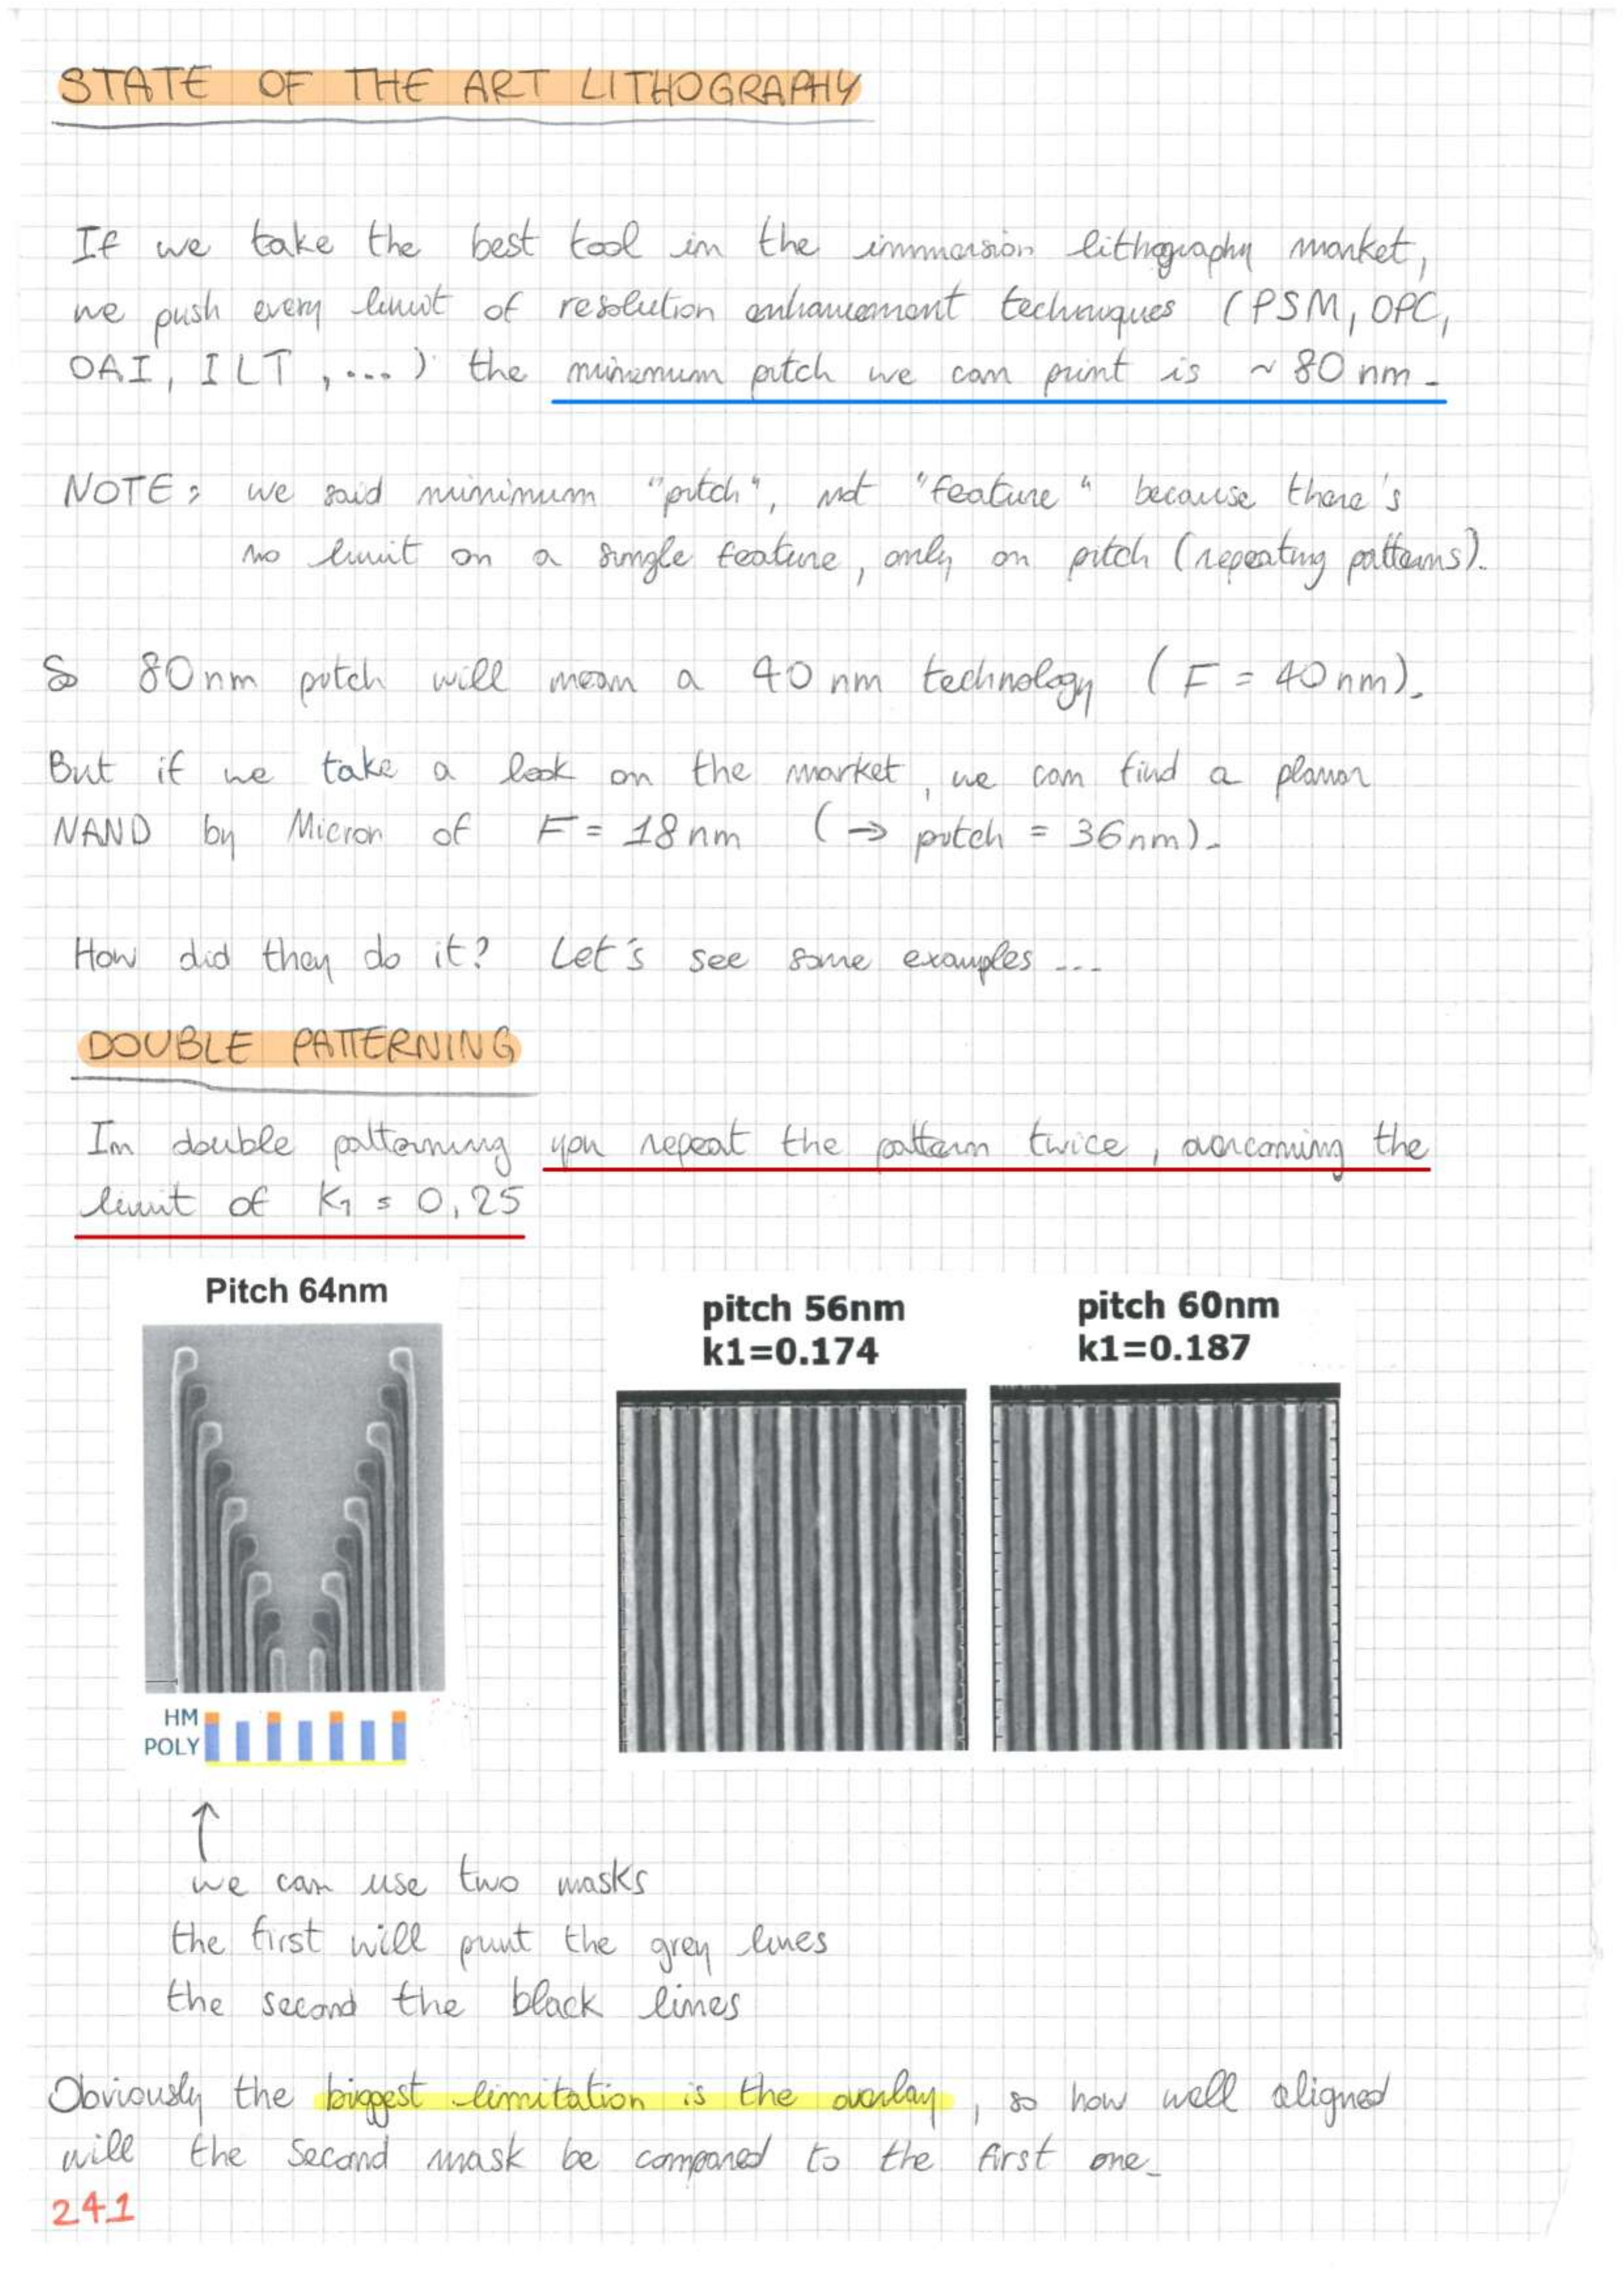 STATE OF THE ART LITHOGRAPHY
If we take the best tool in the immersion lithography market,
we push every limit of resolution enhancement techniques (PSM, OPC,
OAI, ILT, ...) the minimum pitch we can print is ~ 80 nm.
NOTE: we said minimum "pitch", not "feature" because there's
no limit on a single feature, only on pitch (repeating patterns).
So 80nm pitch will mean a 40 nm technology (F = 40nm).
But if we take a look on the market, we can find a planar
NAND by Micron of F = 18nm (→ pitch = 36nm).
How did they do it? Let's see some examples ...
DOUBLE PATTERNING
In double patterning you repeat the pattern twice, overcoming the
limit of K1 = 0,25
Pitch 64nm
pitch 56nm
k1=0.174
pitch 60nm
k1=0.187
HM
POLY
↑
we can use two masks
the first will print the grey lines
the second the black lines
Obviously the biggest limitation is the overlay, so how well aligned
will the second mask be compared to the first one.
241